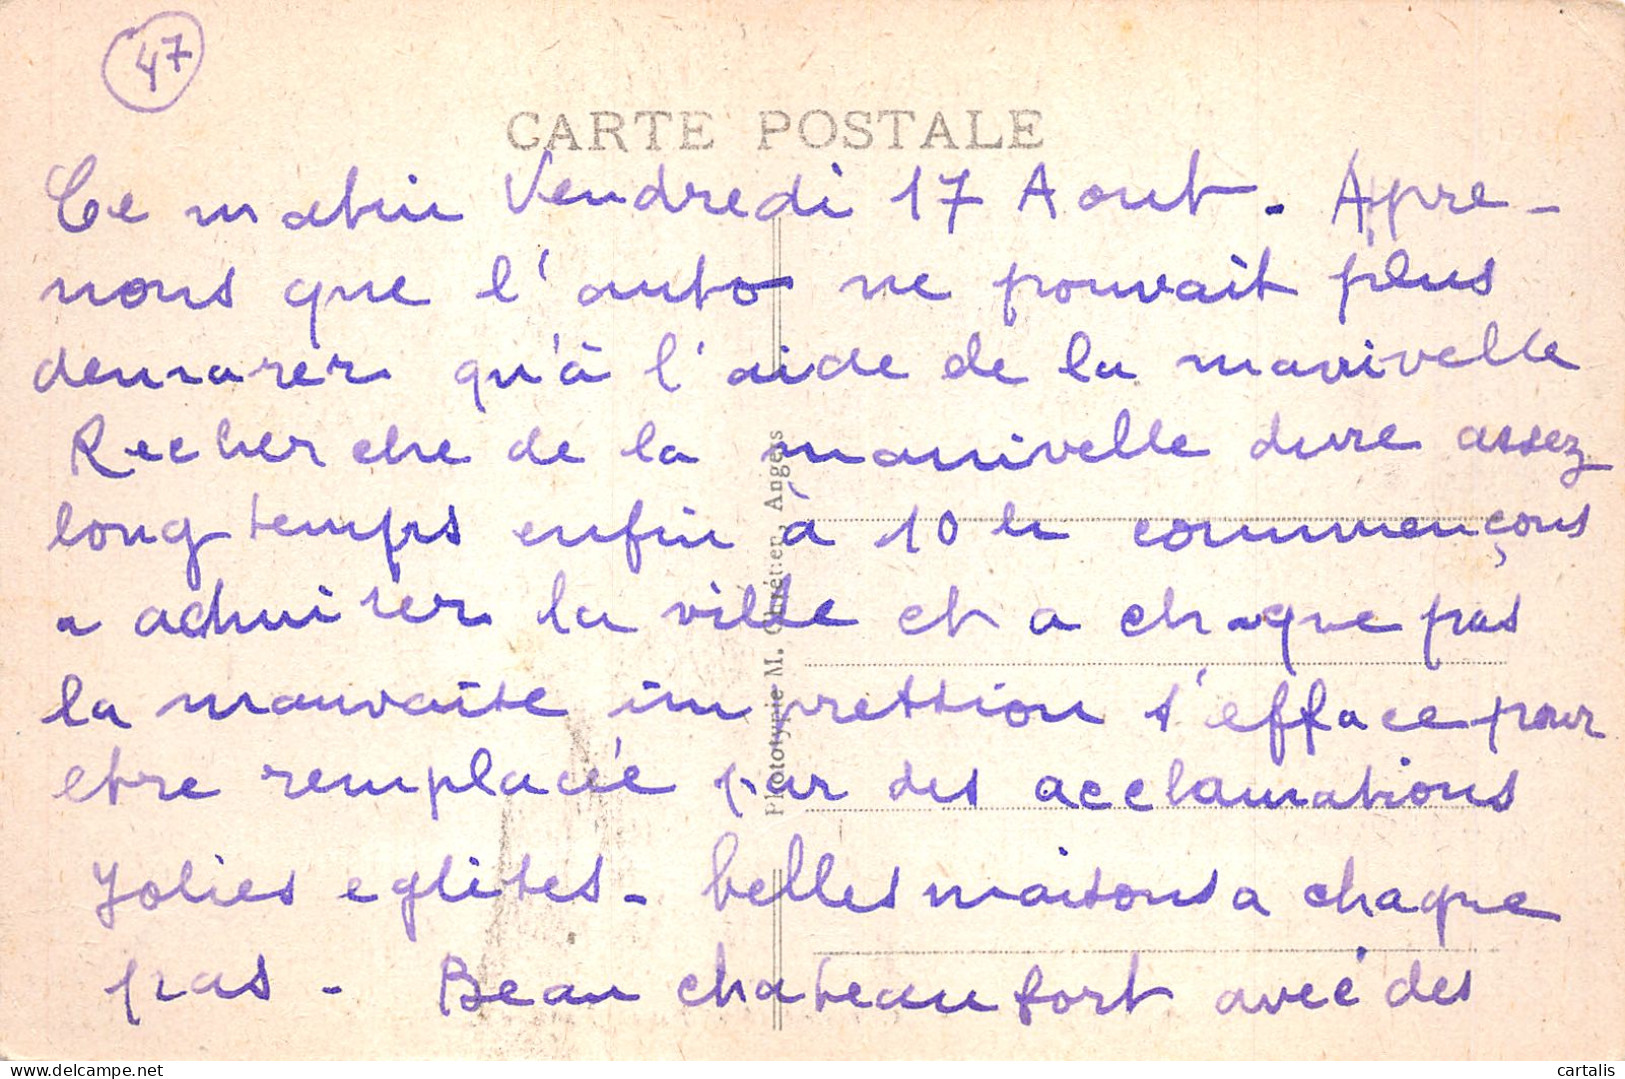 47
CARTE POSTALE
Ce matin Vendredi 17 Aout. Appre-
nons que l'auto ne pouvait plus
demarer qu'à l'aide de la manivelle
Recherche de la manivelle dure assez
longtemps enfin à 10 h commençons
a admirer la ville et a chaque pas
la mauvaise impression s'efface pour
etre remplacée par des acclamations
Jolies eglises - belles maisons a chaque
pas - Beau chateau fort avec des
Phototypie M. Chrétien, Angers
cartalis